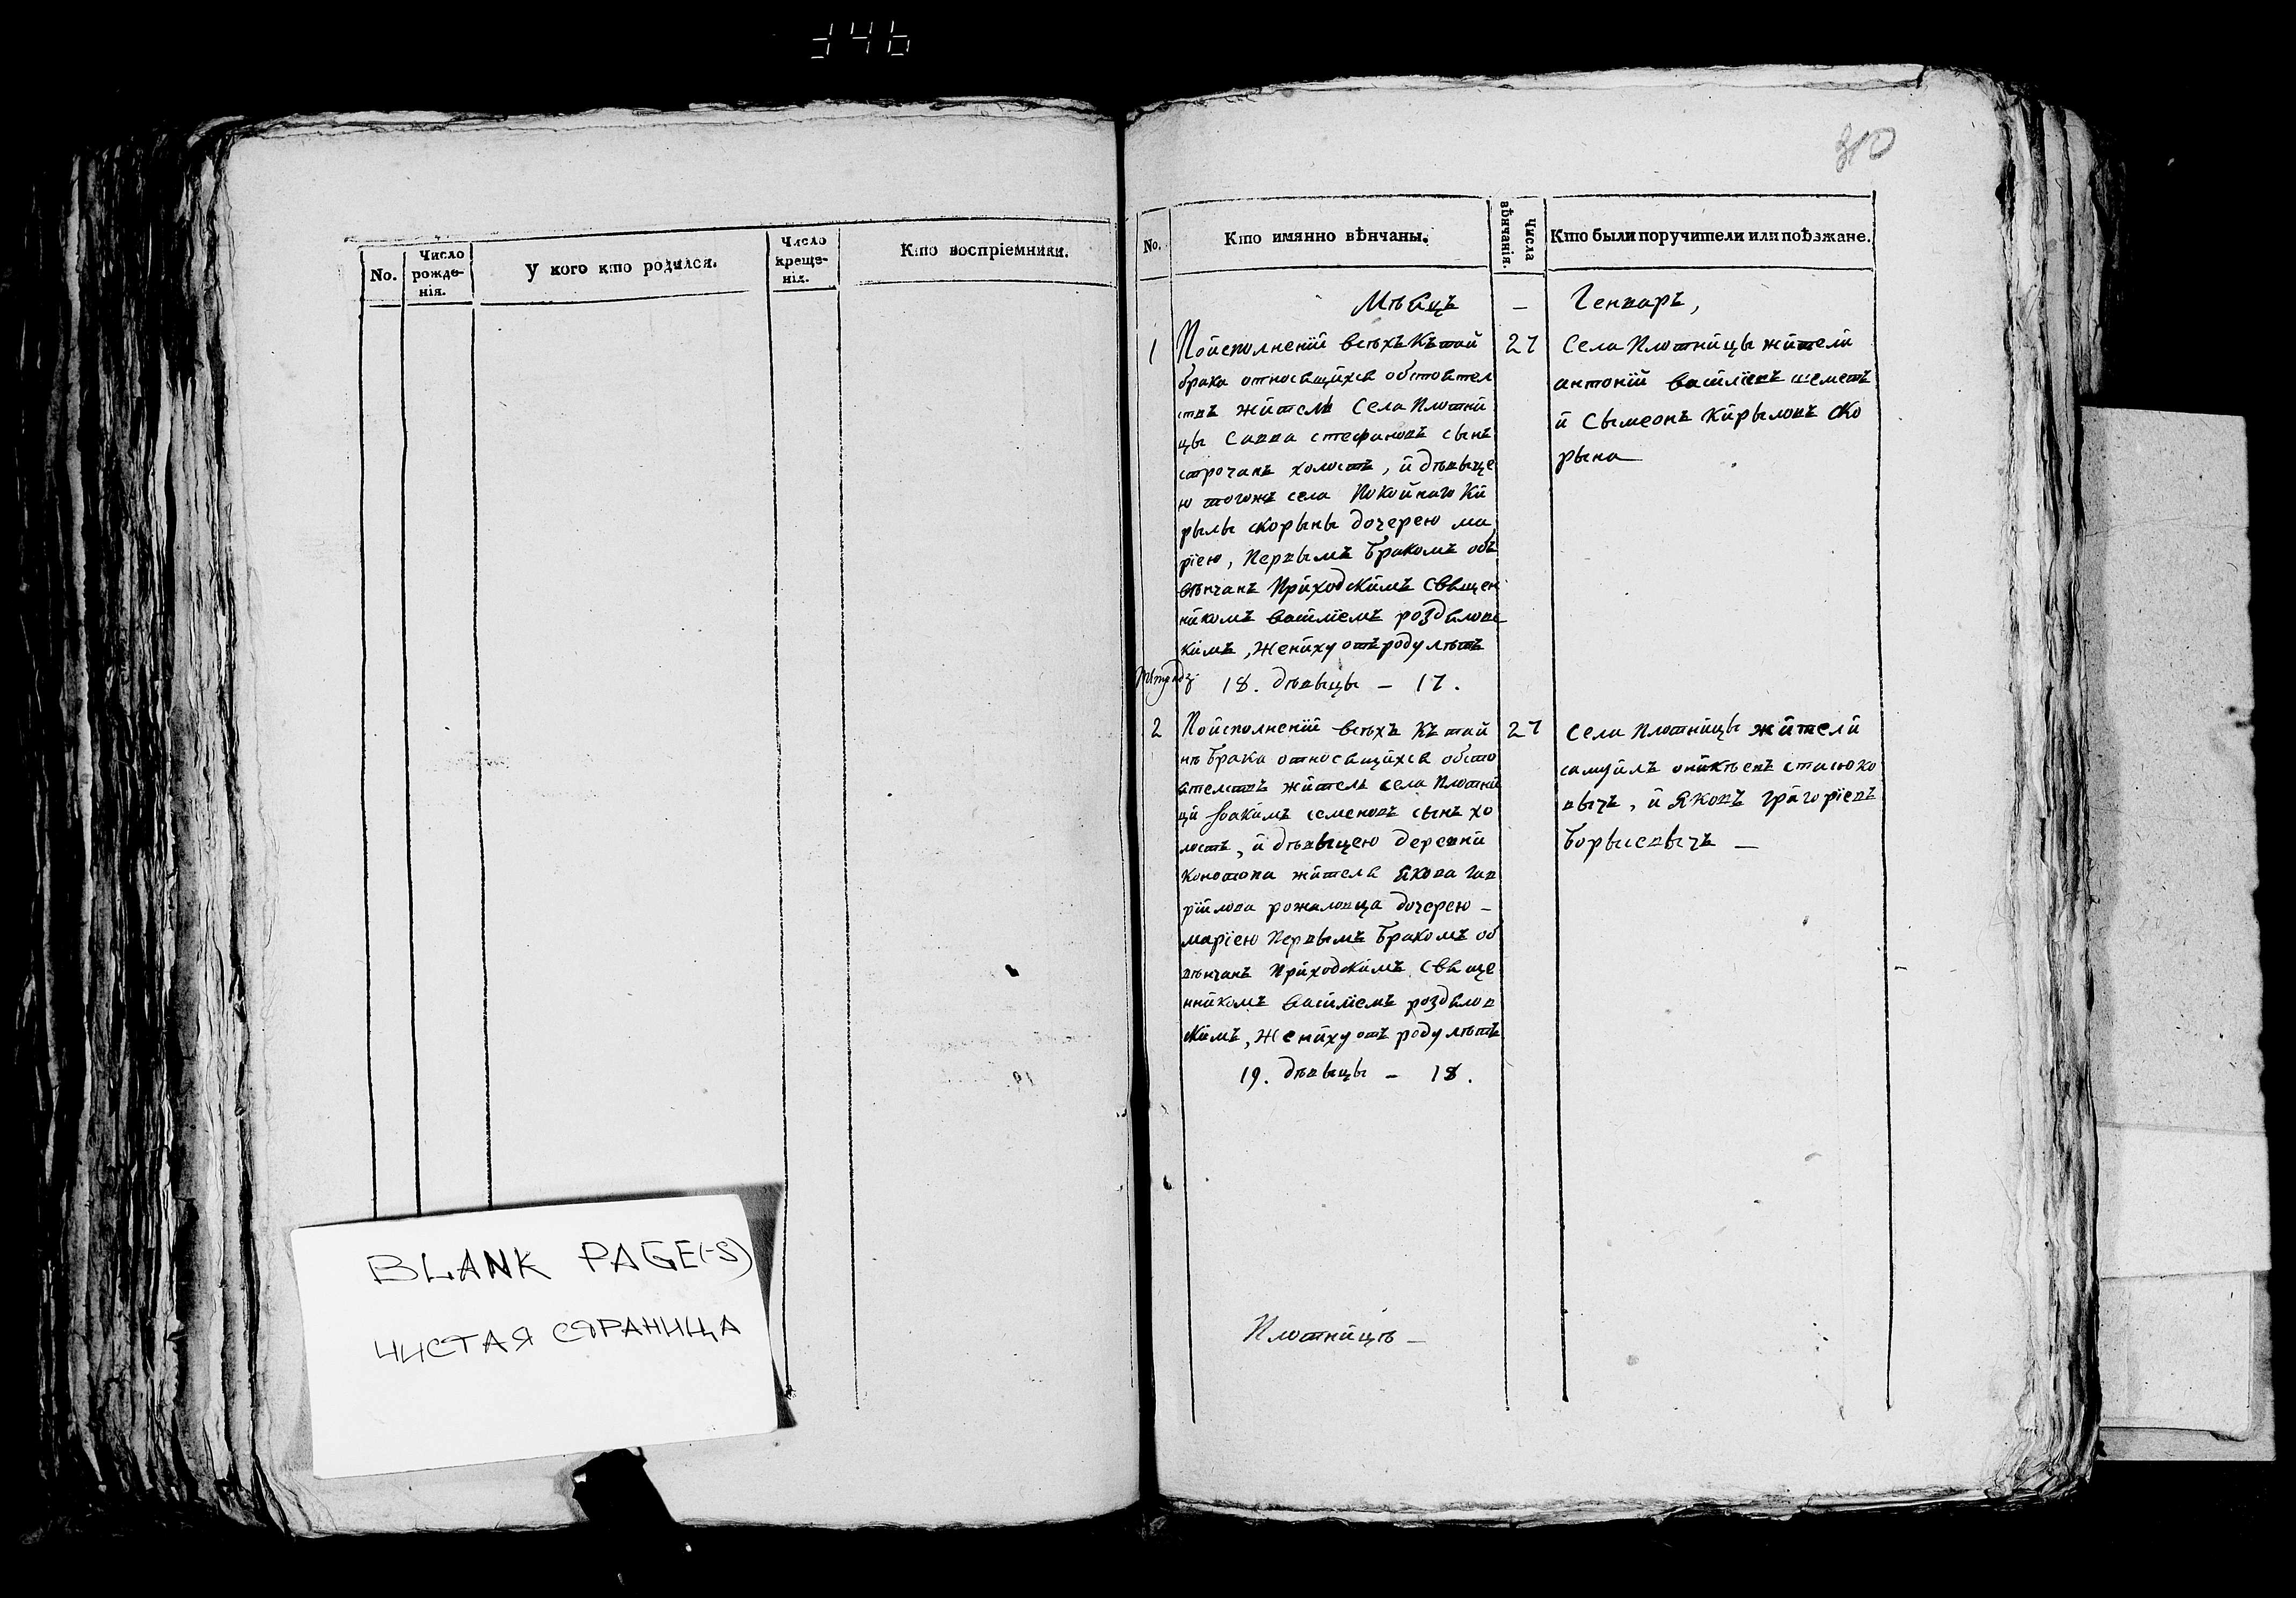 346
No.
Число рожде-
нія.
У кого кто родился.
Число креще-
нія.
Кто воспріемники.
BLANK PAGE(-S)
ЧИСТАЯ СТРАНИЦА
310
No.
Кто имянно вѣнчаны.
Числа вѣнчанія.
Кто были поручители или поѣзжане.
Мѣсяцъ – Генваръ,
1
Поисполненіи всѣхъ Къ тай
брака относящихся обстоятел
ствъ жытель Села Плотни
цы Савва стефановъ сынъ
строчанъ холостъ, и дѣвыце
ю тогожъ села Покойнаго Ки
рылы скорыны дочерею ма
ріею, Первымъ бракомъ объ
вѣнчанъ Приходскимъ Священ
никомъ василіемъ роздяловс
кимъ, жениху отъ роду лѣтъ
18. дѣвыцы – 17.
27
Села Плотницы жители
антоній василіевъ шеметъ
и Сымеонъ Кирыловъ Ско
рына
2
Поисполненіи всѣхъ Къ тай
нѣ брака относящихся обсто
ятелствъ житель села Плотни
ци Іоакимъ семеновъ сынъ хо
лостъ, и дѣвыцею деревни
Конотопа жителя якова гав
рійлова рожаловца дочерею –
маріею Первымъ бракомъ об
вѣнчанъ Приходскимъ Свяще
нникомъ василіемъ роздялов
скимъ, Жениху отъ роду лѣтъ
19. дѣвыцы – 18.
27
Села Плотницы жители
самуилъ оникѣевъ стасюко
вычъ, и яковъ григоріевъ
борысевычъ –
Плотницѣ –